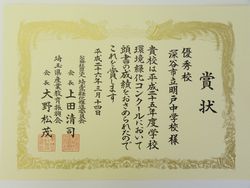 賞状
優秀校
深谷市立明戸中学校 様
貴校は平成二十五年度学校
環境緑化コンクールにおいて
頭書の成績をおさめられたので
これを賞します
平成二十六年三月十四日
会長 上田清司
埼玉県産業教育振興会
会長 大野松茂